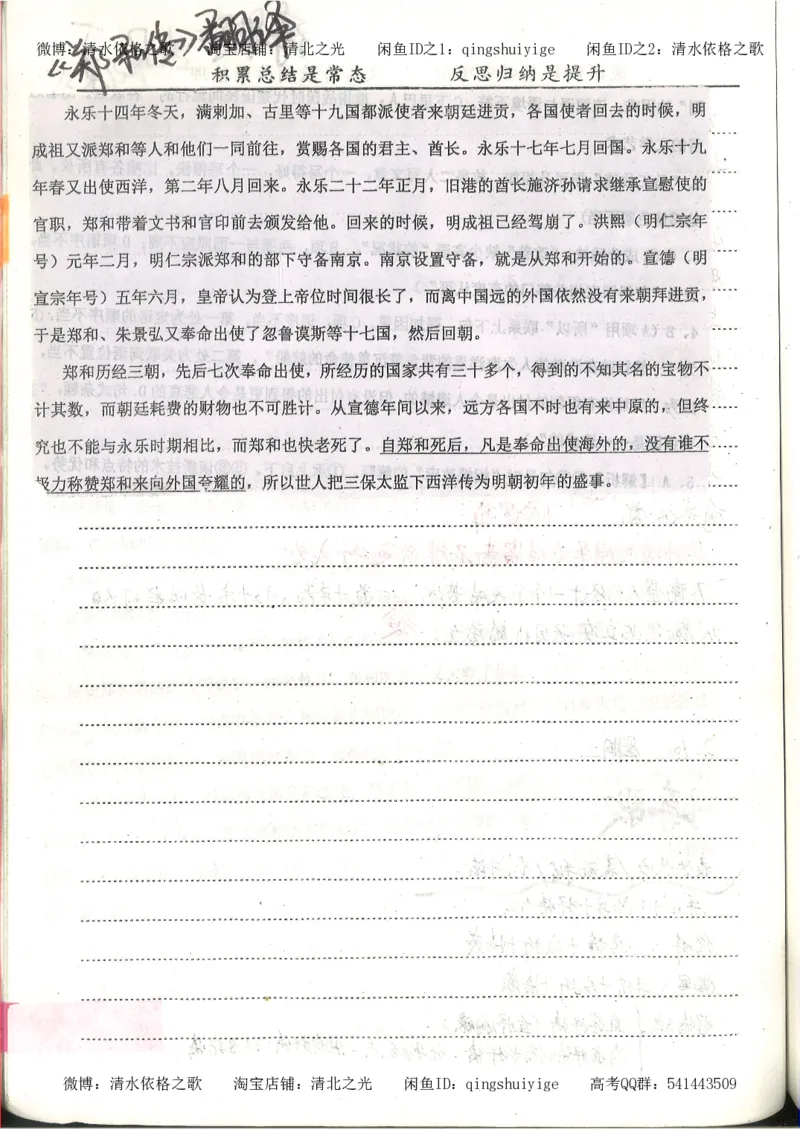 微博：清水依格之歌　　淘宝店铺：清北之光　　闲鱼ID之1：qingshuiyige　　闲鱼ID之2：清水依格之歌
《郑和传》翻译
积累总结是常态　　反思归纳是提升
永乐十四年冬天，满剌加、古里等十九国都派使者来朝廷进贡，各国使者回去的时候，明
成祖又派郑和等人和他们一同前往，赏赐各国的君主、酋长。永乐十七年七月回国。永乐十九
年春又出使西洋，第二年八月回来。永乐二十二年正月，旧港的酋长施济孙请求继承宣慰使的
官职，郑和带着文书和官印前去颁发给他。回来的时候，明成祖已经驾崩了。洪熙（明仁宗年
号）元年二月，明仁宗派郑和的部下守备南京。南京设置守备，就是从郑和开始的。宣德（明
宣宗年号）五年六月，皇帝认为登上帝位时间很长了，而离中国远的外国依然没有来朝拜进贡，
于是郑和、朱景弘又奉命出使了忽鲁谟斯等十七国，然后回朝。
郑和历经三朝，先后七次奉命出使，所经历的国家共有三十多个，得到的不知其名的宝物不
计其数，而朝廷耗费的财物也不可胜计。从宣德年间以来，远方各国不时也有来中原的，但终
究也不能与永乐时期相比，而郑和也快老死了。自郑和死后，凡是奉命出使海外的，没有谁不
极力称赞郑和来向外国夸耀的，所以世人把三保太监下西洋传为明朝初年的盛事。
微博：清水依格之歌　　淘宝店铺：清北之光　　闲鱼ID：qingshuiyige　　高考QQ群：541443509